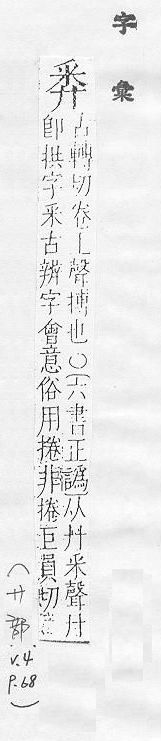 字彙
𢍏古轉切卷上聲摶也○六書正譌从廾釆聲廾
即拱字釆古辨字會意俗用捲非捲巨員切
(廾部
v.4
p.68)